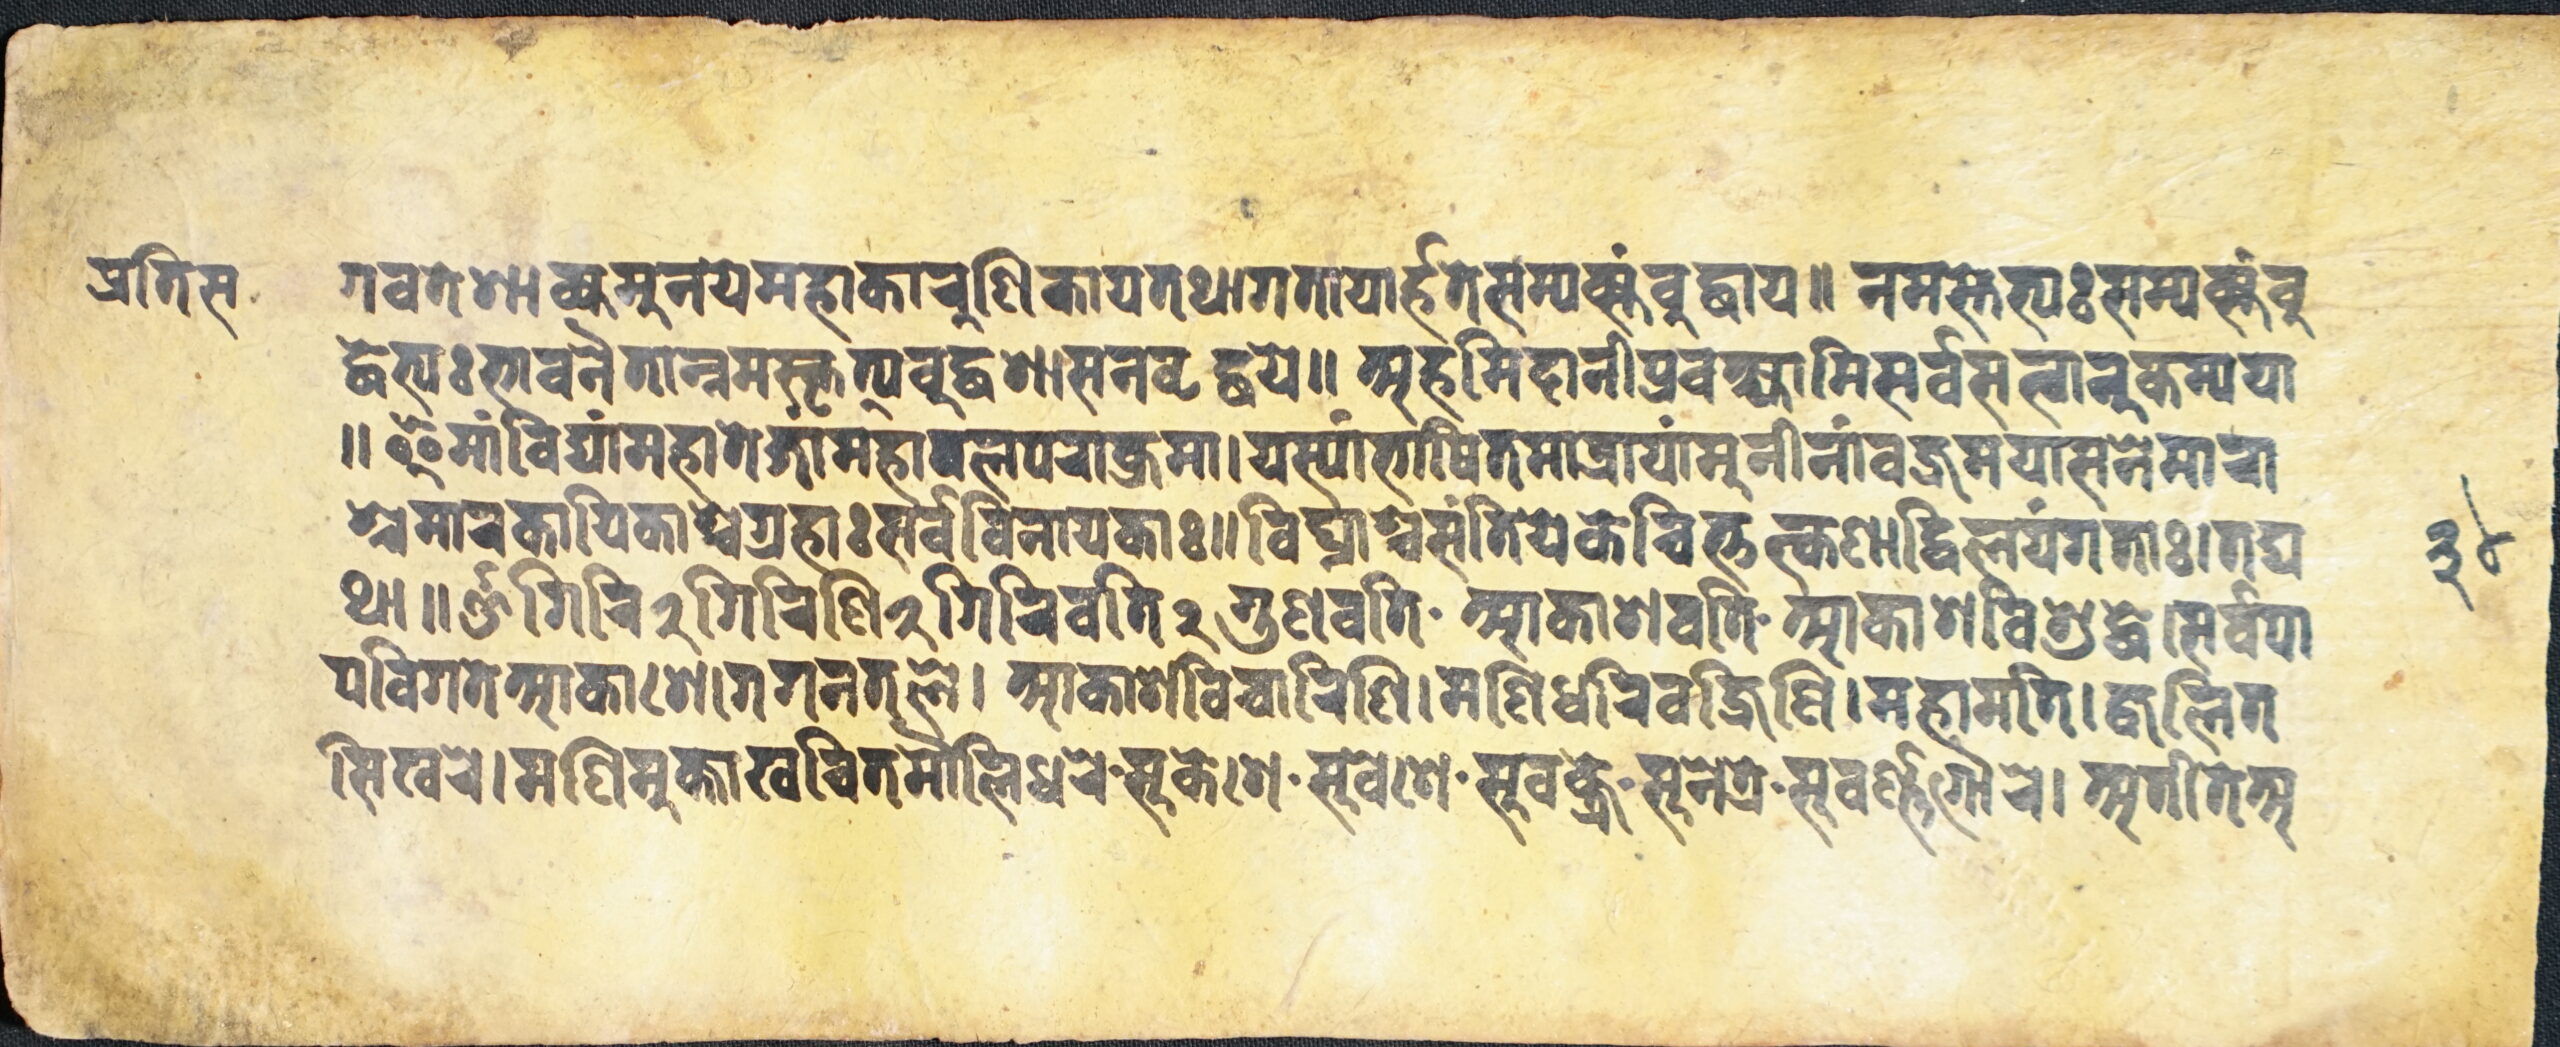 प्रतिस
गवतेशाक्यमुनयेमहाकारुणिकायतथागतायार्हतेसम्यक्संबुद्धाय॥ नमस्तेभ्यःसम्यक्संबु
द्धेभ्यःभावनैतान्नमस्कृत्यबुद्धशासनवृद्धये॥ अहमिदानीप्रवक्ष्यामिसर्वसत्वानुकम्पया
॥ इमांविद्यांमहातेजांमहाबलपराक्रमा।यस्यांभाषितमात्रायांमुनीनांवज्रमयासनेमारा
श्चमारकायिकाश्चग्रहाःसर्वविनायकाः॥विघ्नाश्चसंतियेकेचित्तत्क्षणाद्विलयंगताः।तद्य
था॥ॐगिरि२गिरिणि२गिरिवति२गुणवति· आकाशवति·आकाशविशुद्धे।सर्वपा
पविगतेआकाशे।गगनतले। आकाशविचारिणि।मणिधरिवज्रिणि।महामति।ज्वलित
सिखरे।मणिमुक्ताखचितमौलिधरे·सुकेशे·सुवेशे·सुवक्त्रे·सुनेत्रे·सुवर्ण्णगौरे। अतीतेअ
३४